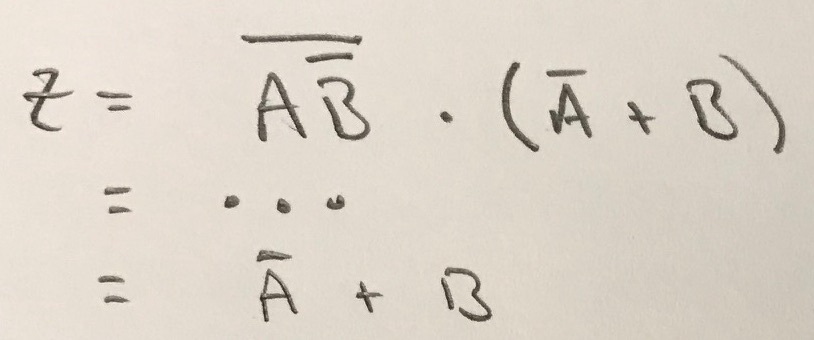 z = \overline{A\overline{B}} · (\overline{A} + B)
= • • •
= \overline{A} + B